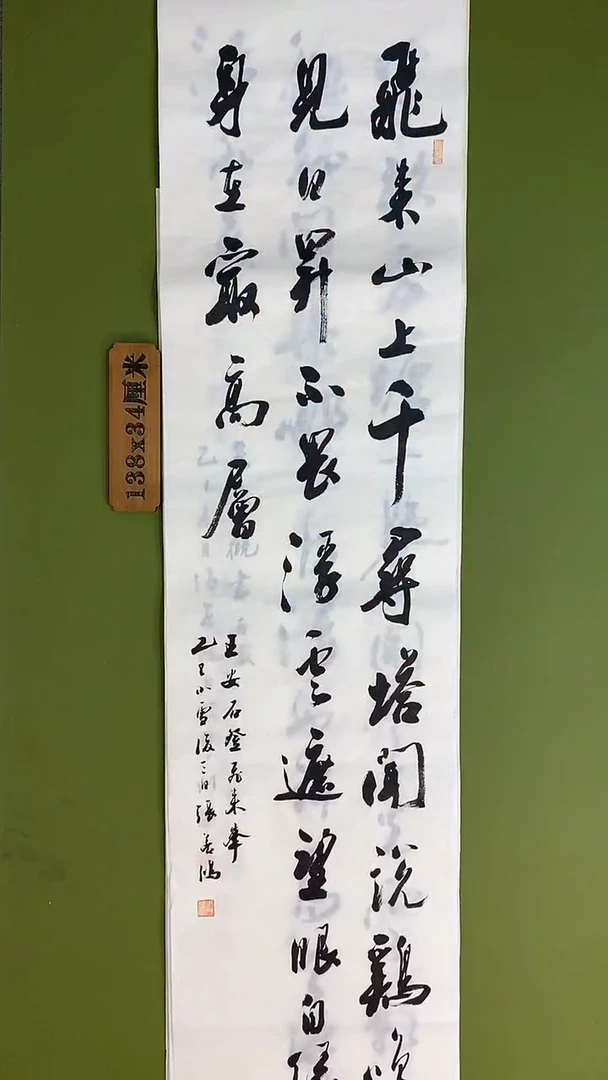 飛来山上千尋塔聞說鷄鳴
見日昇不畏浮雲遮望眼自緣
身在最高層
王安石登飛来峯
乙巳小雪後三日張
138x34厘米